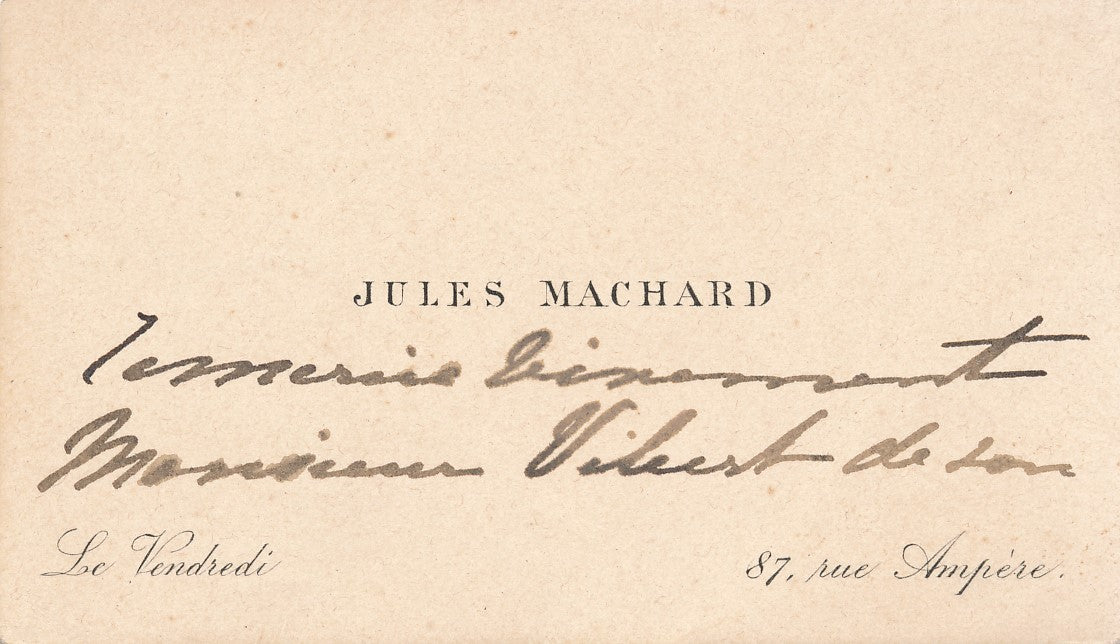 JULES MACHARD
remercie vivement
Monsieur Vibert de son
Le Vendredi
87, rue Ampère.